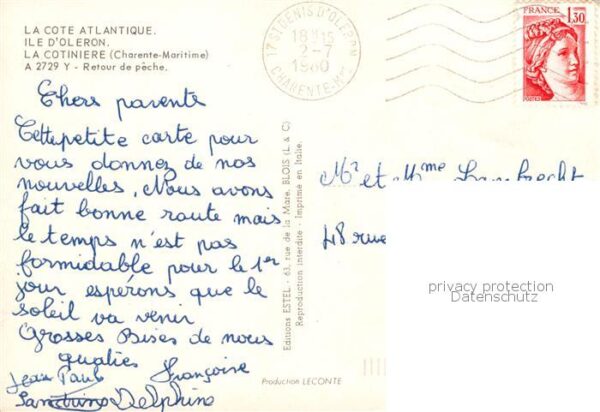 LA COTE ATLANTIQUE.
ILE D'OLERON.
LA COTINIERE (Charente-Maritime)
A 2729 Y - Retour de pêche.
17 ST DENIS D'OLERON
18H15
2-7
1980
CHARENTE-Mme
FRANCE
1,30
POSTES
Chers parents
Cette petite carte pour
vous donnez de nos
nouvelles. Nous avons
fait bonne route mais
le temps n'est pas
formidable pour le 1er
jour espérons que le
soleil va venir
Grosses Bises de nous
quatres
Jean Paul Françoise
Sandrine Delphine
Editions ESTEL - 63, rue de la Mare, BLOIS (L. & C)
Reproduction interdite - Imprimé en Italie.
Production LECONTE
Mr et Mme Lambrecht
48 rue
privacy protection
Datenschutz